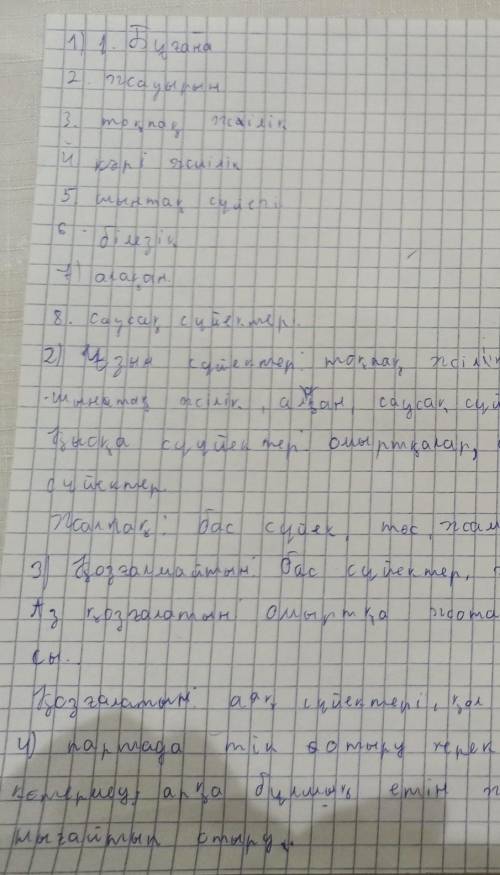 1) 1. Бұғана
2. жауырын
3. тоқпақ жілік
4 кәрі жілік
5 шынтақ сүйегі
6 білезік
7) алақан
8. саусақ сүйектері.
2) Ұзын сүйектер: тоқпақ, жілік
шынтақ жілік, алақан, саусақ сүй
Қысқа сүүйектер: омыртқалар,
сүйектер.
Жалпақ: бас сүйек, төс, жам
3) Қозғалмайтын: бас сүйектер,
Аз қозғалатын: омыртқа жота
сы.
Қозғалатын: аяқ сүйектері, қол
4) партада тік отыру керек
көтермеу, арқа бұлшық етін
шығайтып отыру.